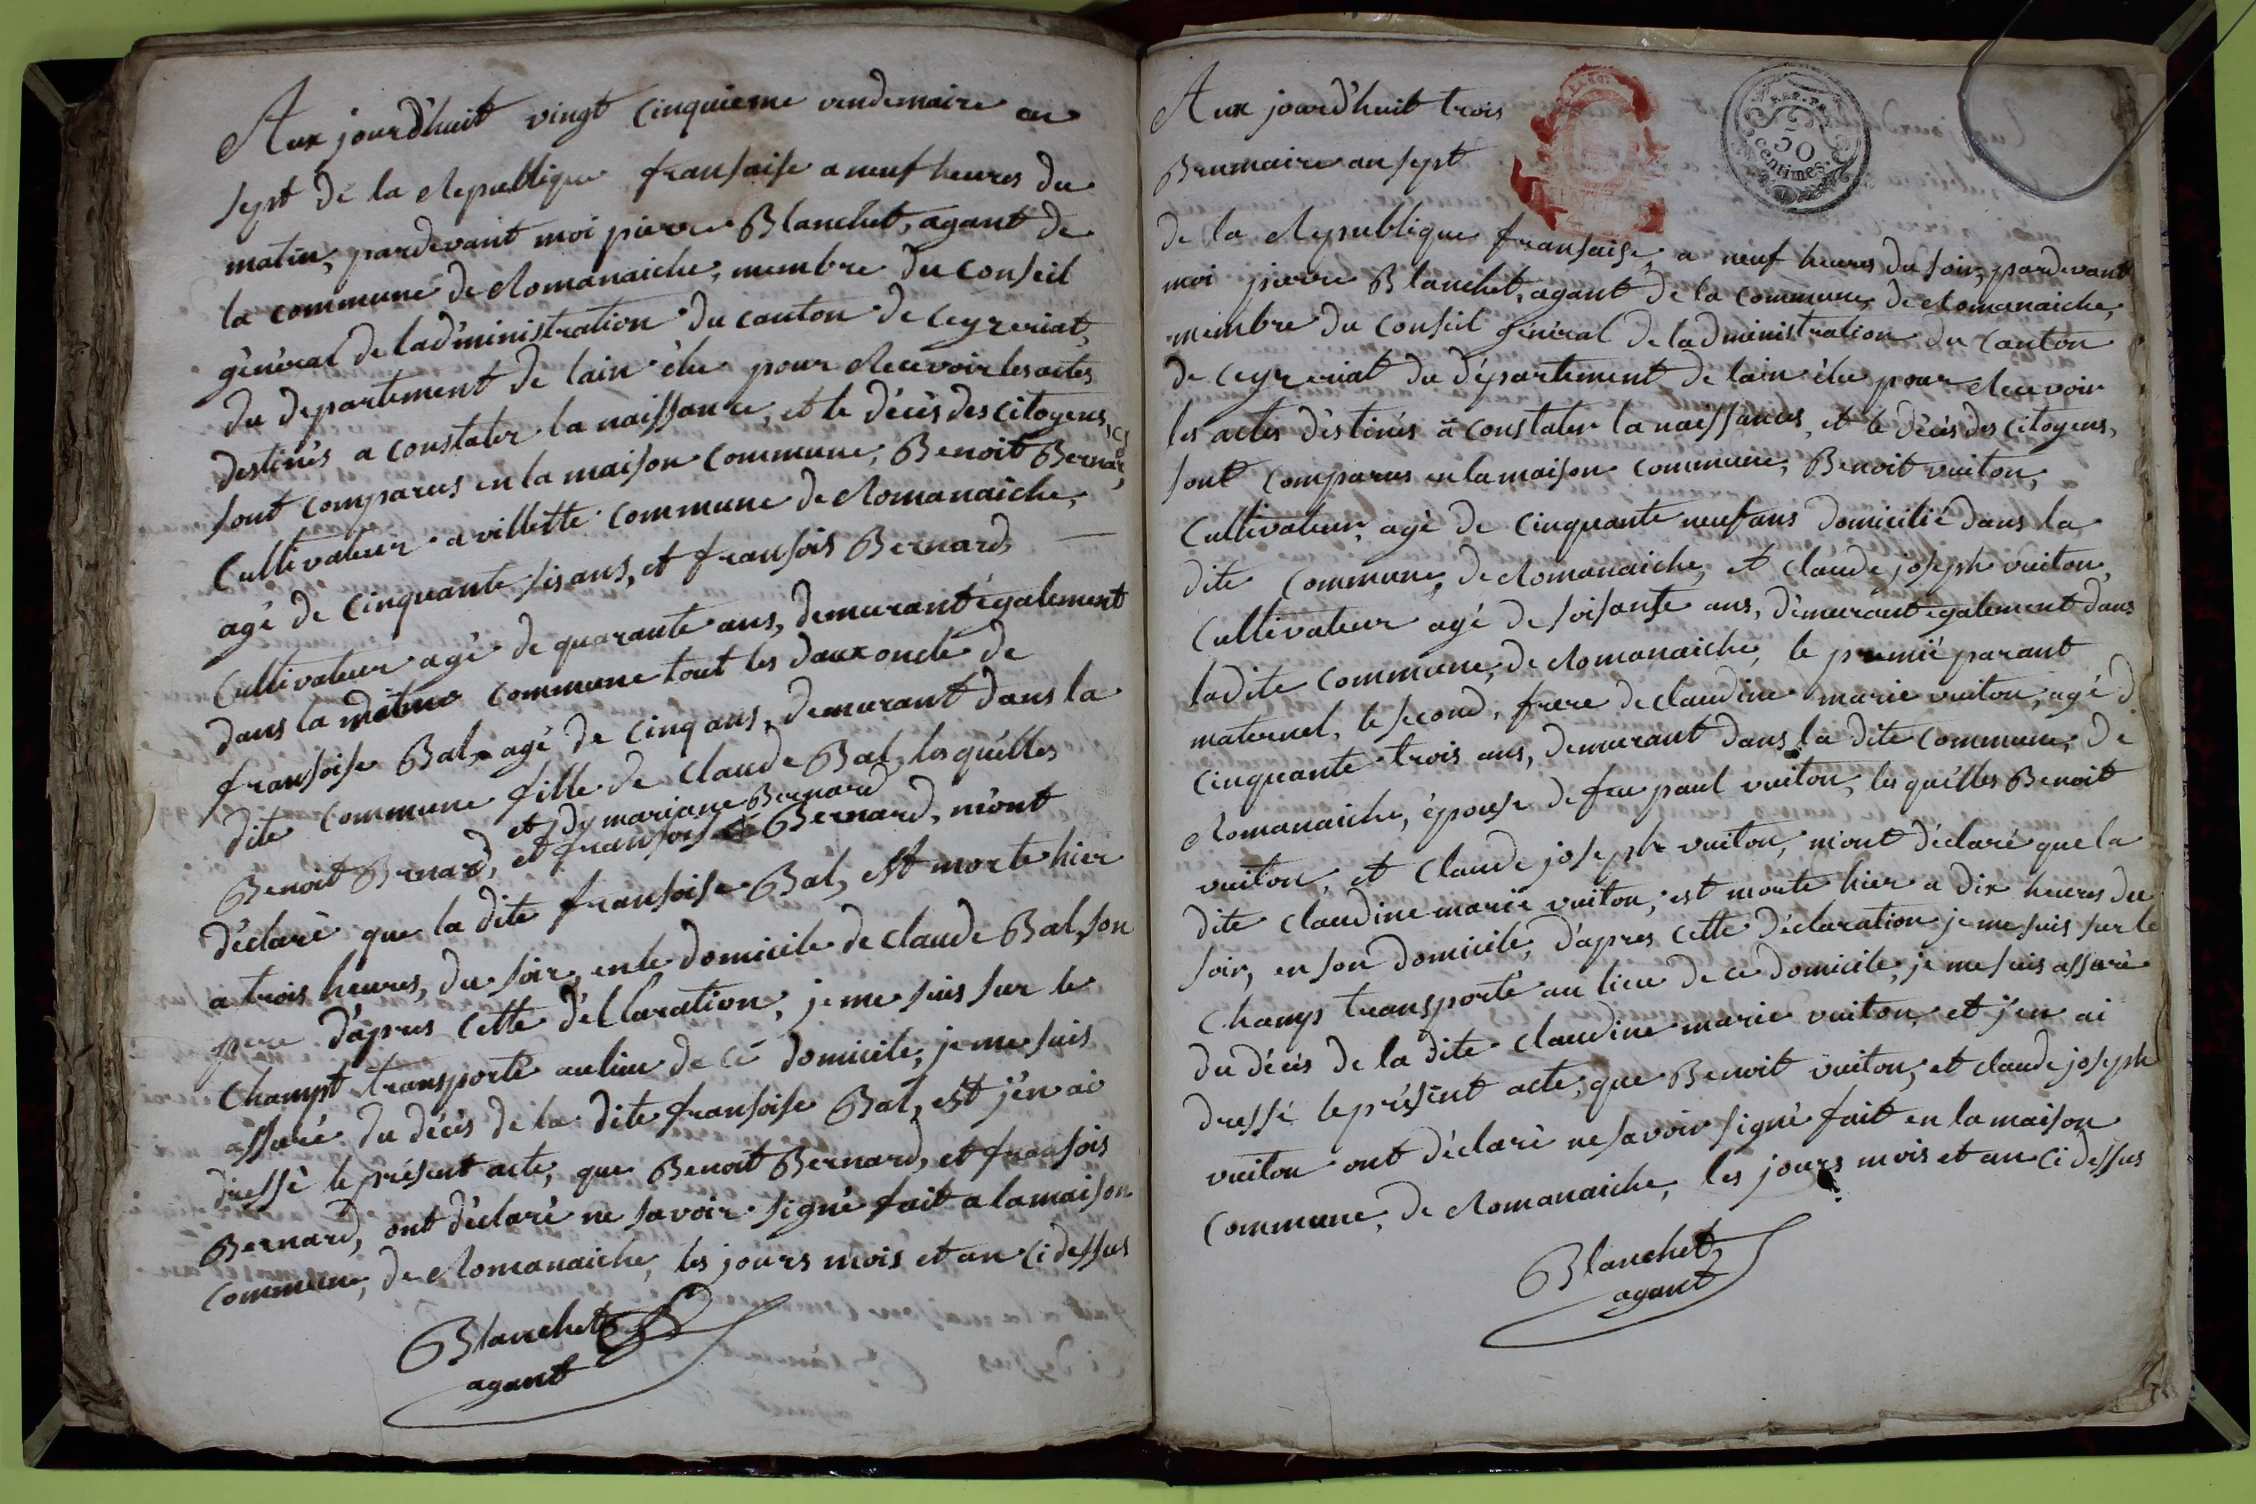 Aux jourd'huit vingt cinquieme vendemaire an
sept de la Republique fransaise a neuf heures du
matin, pardevant moi pierre Blanchet, agant de
la commune de Romanaiche, membre du conseil
général de ladministration du canton de Ceyzeriat,
du departement de lain élu pour Recevoir les actes
destinés a constater la naissance, et le décès des citoyens,
sont comparus en la maison commune, Benoit Bernar,
Cultivateur a villette commune de Romanaiche,
agé de cinquante sis ans, et fransois Bernard
Cultivateur agé de quarante ans, demurant également
dans la même commune tout les daux oncle de
fransoise Bal, agé de cinq ans, demurant dans la
dite commune fille de claude Bal, lesquélles
et dy mariane Bernard
Benoit Bernard, et fransois Bernard, m'ont
déclaré que la dite fransoise Bal, est morte hier
a trois heures, du soir, en le domicile de claude Bal, son
pere d'apres cette déllaration, je me suis sur le
Champt transporté au lieu de ce domicile, je me suis
assuré du décès de la dite fransoise Bal, est j'en ai
dressé le présent acte, que Benoit Bernard, et fransois
Bernard, ont déclaré ne savoir signé fait a la maison
commune, de Romanaiche, les jours mois et an Ci dessus
Blanchet
agant
Aux jourd'huit trois
Brumaire an sept
REP. FR.
50
centimes.
de la Republique fransaise, a neuf heures du soir, pardevant
moi pierre Blanchet, agant de la commune, de Romanaiche,
membre du conseil général de ladministration du Canton
de Ceyzeriat du département de lain élu pour Recevoir
les actes déstinés à constater la naissances, et le décès des citoyens,
sont comparus en la maison commune, Benoit vuiton,
Cultivateur, agé de cinquante neuf ans domicilié dans la
dite commune, de Romanaiche, et claude joseph vuiton,
Cultivateur agé de soisante ans, démurant également dans
ladite commune, de Romanaiche, le premié parant
maternel, le second, frere de claudine marie vuiton, agé d
cinquante trois ans, demurant dans la dite commune, de
Romanaiche, épouse de feu paul vuiton, les quélles Benoit
vuiton, et Claude joseph vuiton, m'ont déclaré que la
dite claudine marie vuiton, est morte hier a dix heures du
soir, en son domicile, d'apres cette déclaration je me suis sur le
Champs transporté au lieu de ce domicile, je me suis assuré
du décès de la dite claudine marie vuiton, et j'en ai
dressé le présent acte, que Benoit vuiton, et claude joseph
vuiton ont déclaré ne savoir signé fait en la maison
commune, de Romanaiche, les jours mois et an Ci dessus
Blanchet
agant